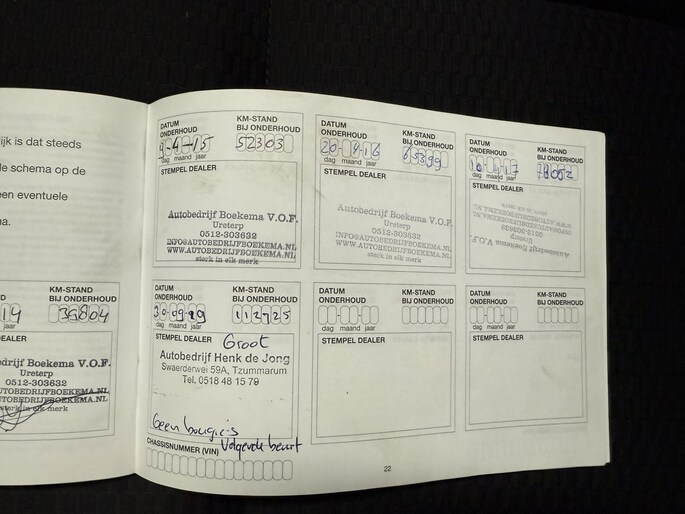 ijk is dat steeds
le schema op de
een eventuele
na.
KM-STAND
BIJ ONDERHOUD
14
39804
jaar
drijf Boekema V.O.F.
Ureterp
0512-303632
AUTOBEDRIJFBOEKEMA.NL
AUTOBEDRIJFBOEKEMA.NL
sterk in elk merk
DATUM ONDERHOUD
KM-STAND BIJ ONDERHOUD
9-4-15
52303
dag maand jaar
STEMPEL DEALER
Autobedrijf Boekema V.O.F.
Ureterp
0512-303632
INFO@AUTOBEDRIJFBOEKEMA.NL
WWW.AUTOBEDRIJFBOEKEMA.NL
sterk in elk merk
DATUM ONDERHOUD
KM-STAND BIJ ONDERHOUD
20-4-16
65399
dag maand jaar
STEMPEL DEALER
Autobedrijf Boekema V.O.F.
Ureterp
0512-303632
INFO@AUTOBEDRIJFBOEKEMA.NL
WWW.AUTOBEDRIJFBOEKEMA.NL
sterk in elk merk
DATUM ONDERHOUD
KM-STAND BIJ ONDERHOUD
78052
dag maand jaar
STEMPEL DEALER
Autobedrijf Boekema V.O.F.
Ureterp
0512-303632
INFO@AUTOBEDRIJFBOEKEMA.NL
WWW.AUTOBEDRIJFBOEKEMA.NL
sterk in elk merk
DATUM ONDERHOUD
KM-STAND BIJ ONDERHOUD
30-09-19
112725
dag maand jaar
STEMPEL DEALER
Groot
Autobedrijf Henk de Jong
Swaerderwei 59A, Tzummarum
Tel. 0518 48 15 79
Geen bougies
Volgende beurt
CHASSISNUMMER (VIN)
DATUM ONDERHOUD
KM-STAND BIJ ONDERHOUD
dag maand jaar
STEMPEL DEALER
DATUM ONDERHOUD
KM-STAND BIJ ONDERHOUD
dag maand jaar
STEMPEL DEALER
22